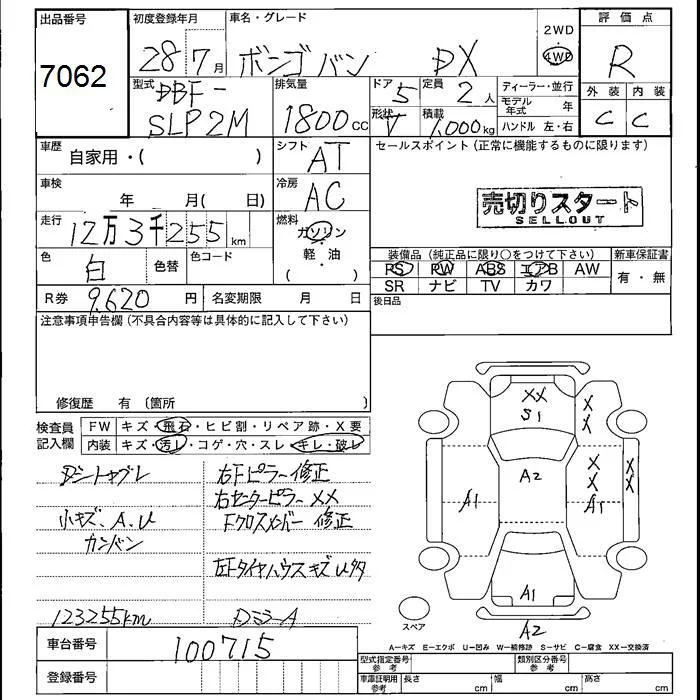 出品番号
7062
初度登録年月
28年7月
車名・グレード
ボンゴバン DX
2WD
4WD
評価点
R
外装 内装
C C
型式
DBF-
SLP2M
排気量
1800cc
ドア 5
形状 V
定員 2人
積載 1,000kg
ディーラー・並行
モデル年式 年
ハンドル 左・右
車歴
自家用・( )
シフト
AT
セールスポイント (正常に機能するものに限ります)
売切りスタート
SELLOUT
車検
年 月( 日)
冷房
AC
走行
12万3千255km
燃料
ガソリン
軽・油
( )
色
白
色替
色コード
装備品 (純正品に限り○をつけて下さい)
PS PW ABS エアB AW
SR ナビ TV カワ
新車保証書
有・無
後日品
R券 9,620円
名変期限 月 日
注意事項申告欄 (不具合内容等は具体的に記入して下さい)
修復歴 有 〔箇所 〕
検査員
記入欄
FW キズ・飛石・ヒビ割・リペア跡・X要
内装 キズ・汚レ・コゲ・穴・スレ・キレ・破レ
小キズ、A、U
カンバン
123255km
右Fピラー修正
右センターピラーXX
Fクロスメンバー修正
左Fタイヤハウスキズ U多
DミラーA
XX
S1
X
X
A2
X
X
X
X
A1
A1
A1
A2
スペア
A−キズ E−エクボ U−凹み W−補修跡 S−サビ C−腐食 XX−交換済
車台番号
100715
登録番号
型式指定番号
参考
類別区分番号
参考
車庫証明用
参考
長さ cm
幅 cm
高さ cm